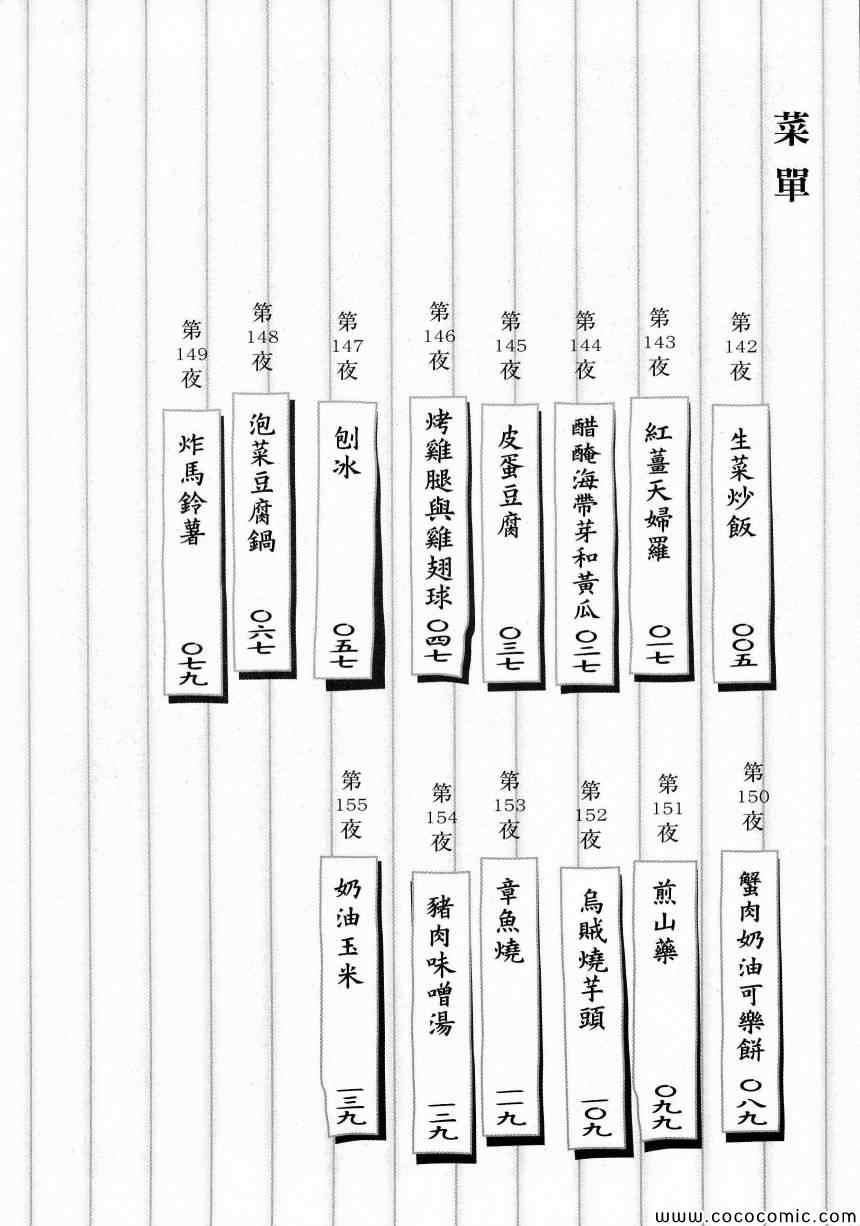 菜單
第142夜
生菜炒飯 〇〇五
第143夜
紅薑天婦羅 〇一七
第144夜
醋醃海帶芽和黃瓜 〇二七
第145夜
皮蛋豆腐 〇三七
第146夜
烤雞腿與雞翅球 〇四七
第147夜
刨冰 〇五七
第148夜
泡菜豆腐鍋 〇六七
第149夜
炸馬鈴薯 〇七九
第150夜
蟹肉奶油可樂餅 〇八九
第151夜
煎山藥 〇九九
第152夜
烏賊燒芋頭 一〇九
第153夜
章魚燒 一一九
第154夜
豬肉味噌湯 一二九
第155夜
奶油玉米 一三九
www.cococomic.com